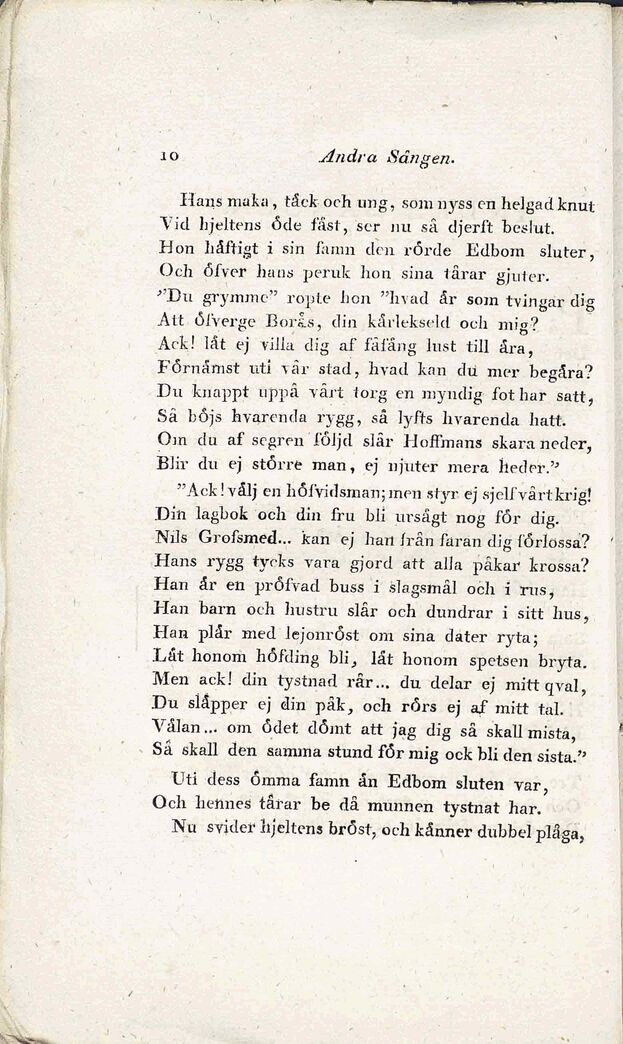 10 Andra Sången.
Hans maka, täck och ung, som nyss en helgad knut
Vid hjeltens öde fäst, ser nu så djerft beslut.
Hon häftigt i sin famn den rörde Edbom sluter,
Och öfver hans peruk hon sina tårar gjuter.
”Du grymme” ropte hon ”hvad är som tvingar dig
Att öfverge Borås, din kärlekseld och mig?
Ack! låt ej villa dig af fåfäng lust till ära,
Förnämst uti vår stad, hvad kan du mer begära?
Du knappt uppå vårt torg en myndig fot har satt,
Så böjs hvarenda rygg, så lyfts hvarenda hatt.
Om du af segren följd slår Hoffmans skara neder,
Blir du ej större man, ej njuter mera heder.”
”Ack! välj en höfvidsman; men styr ej sjelf vårt krig!
Din lagbok och din fru bli ursägt nog för dig.
Nils Grofsmed... kan ej han från faran dig förlossa?
Hans rygg tycks vara gjord att alla påkar krossa?
Han är en pröfvad buss i slagsmål och i rus,
Han barn och hustru slår och dundrar i sitt hus,
Han plär med lejonröst om sina dater ryta;
Låt honom höfding bli, låt honom spetsen bryta.
Men ack! din tystnad rår... du delar ej mitt qval,
Du släpper ej din påk, och rörs ej af mitt tal.
Välan... om ödet dömt att jag dig så skall mista,
Så skall den samma stund för mig ock bli den sista.”
Uti dess ömma famn än Edbom sluten var,
Och hennes tårar be då munnen tystnat har.
Nu svider hjeltens bröst, och känner dubbel plåga,